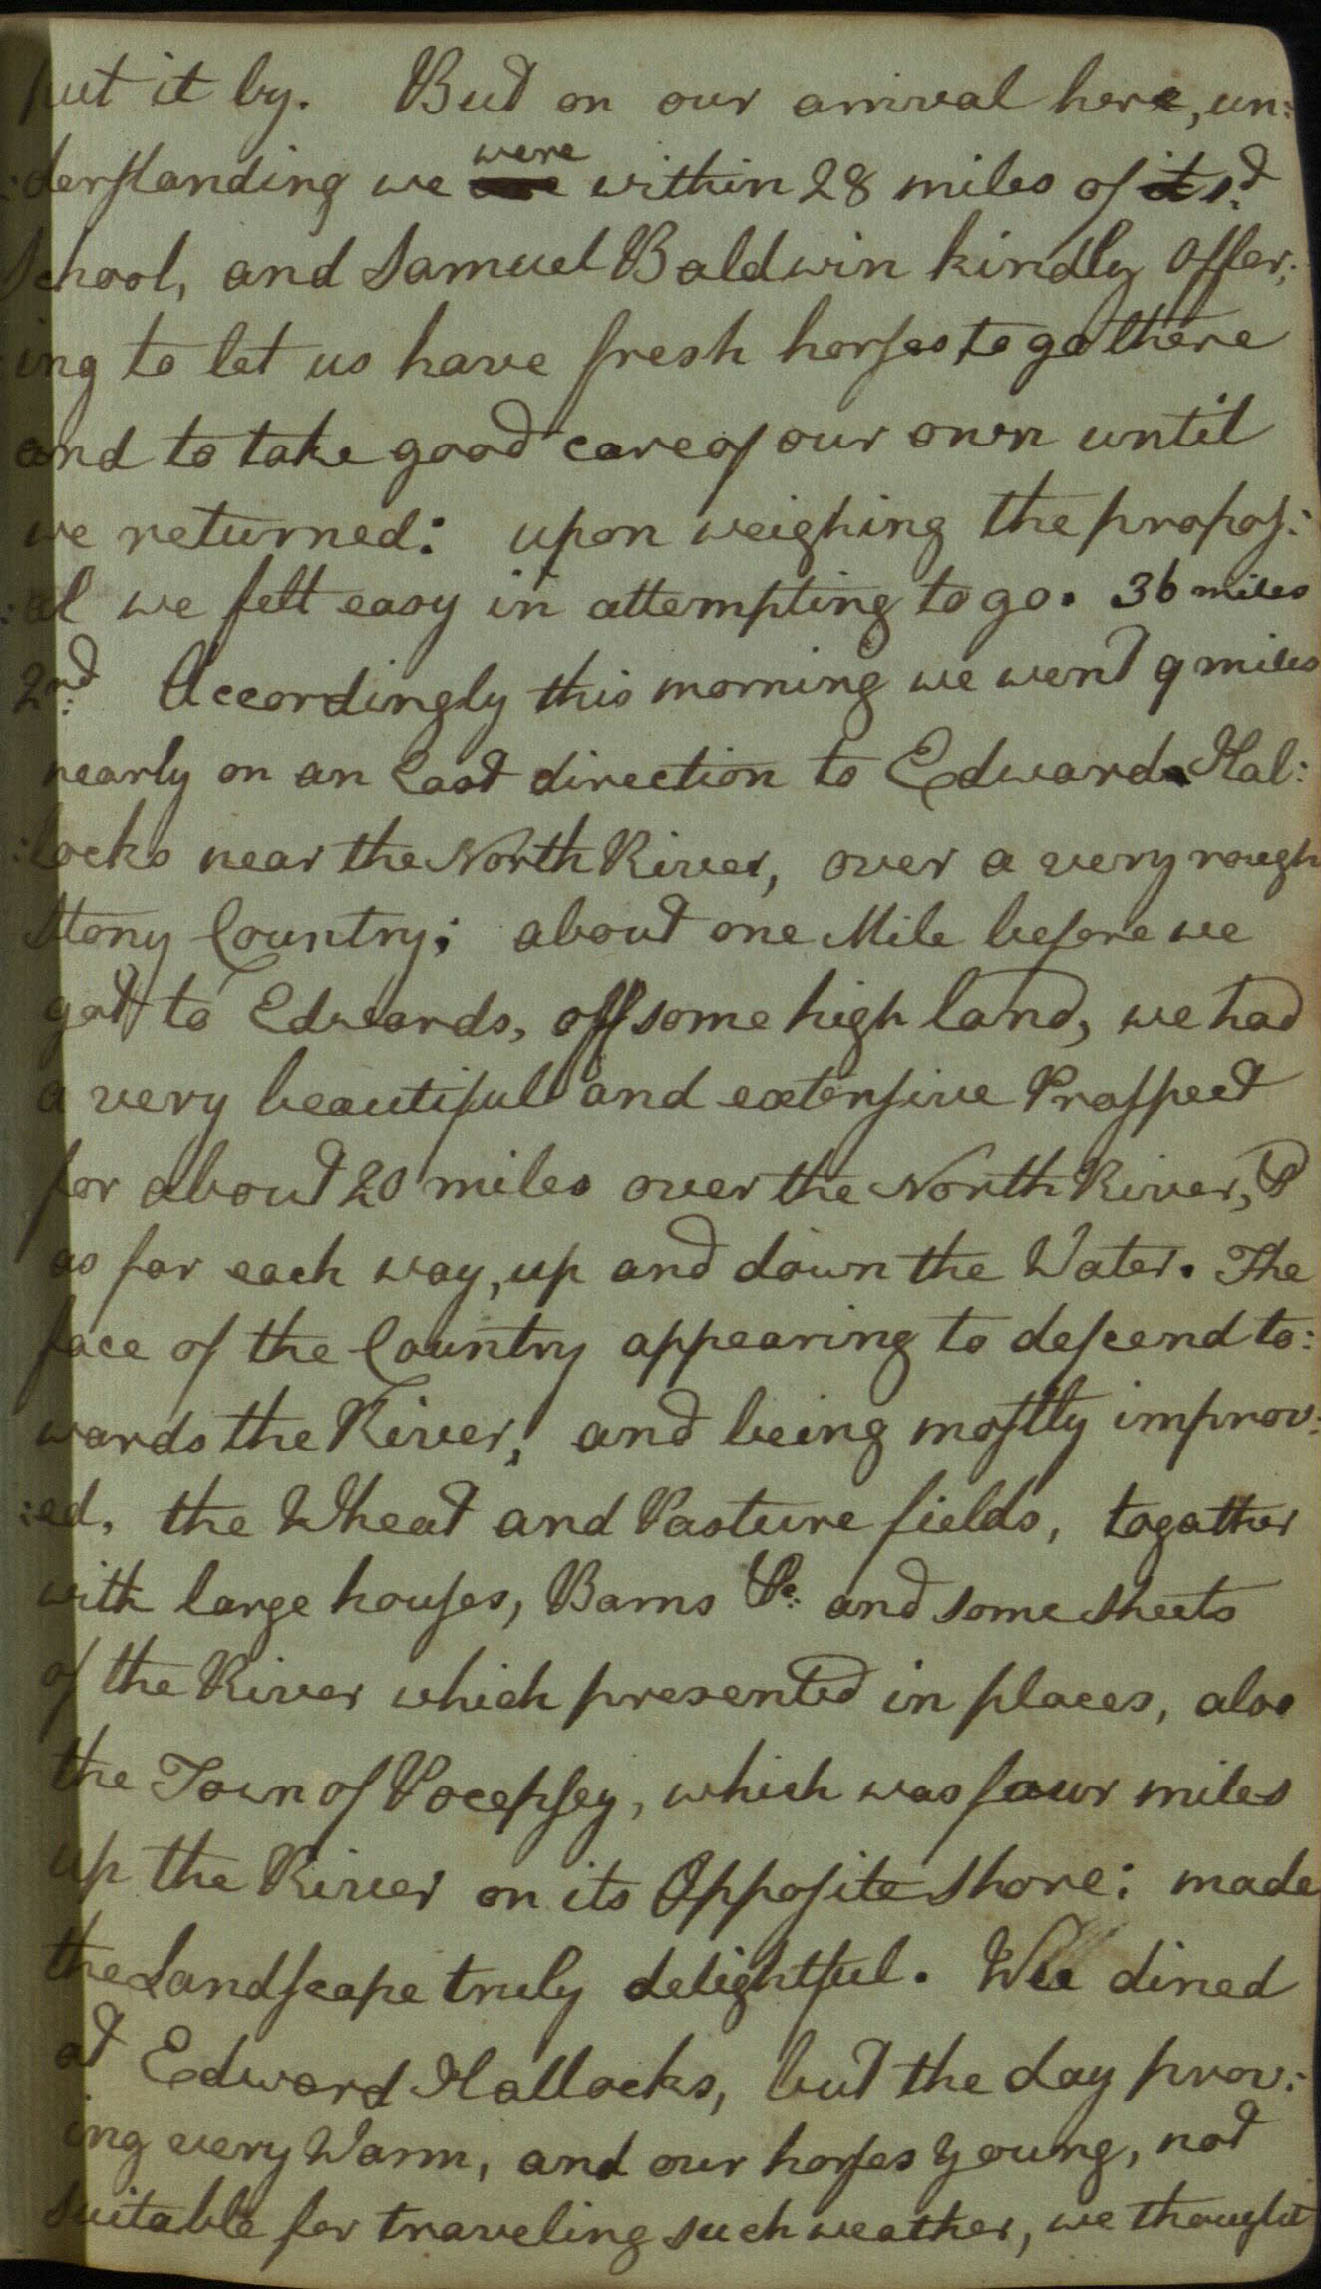 put it by. But on our arrival here, un:
:derstanding we were within 28 miles of s.d
School, and Samuel Baldwin kindly offer:
:ing to let us have fresh horses to go there
and to take good care of our own until
we returned: upon weighing the propos:
:al we felt easy in attempting to go. 36 miles
2nd. Accordingly this morning we went 9 miles
nearly on an East direction to Edward Hal:
:locks near the North River, over a very rough
Stony Country; about one Mile before we
got to Edwards, off some high land, we had
a very beautifull and extensive Prospect
for about 20 miles over the North River, &
as far each way, up and down the Water. The
face of the Country appearing to descend to:
wards the River, and being mostly improv:
:ed, the Wheat and Pasture fields, together
with large houses, Barns &c. and some sheets
of the River which presented in places, also
the Town of Pocepsey, which was four miles
up the River on its Opposite Shore: made
the Landscape truly delightful. We dined
at Edward Hallocks, but the day prov:
ing very Warm, and our horses young, not
suitable for traveling such weather, we thought